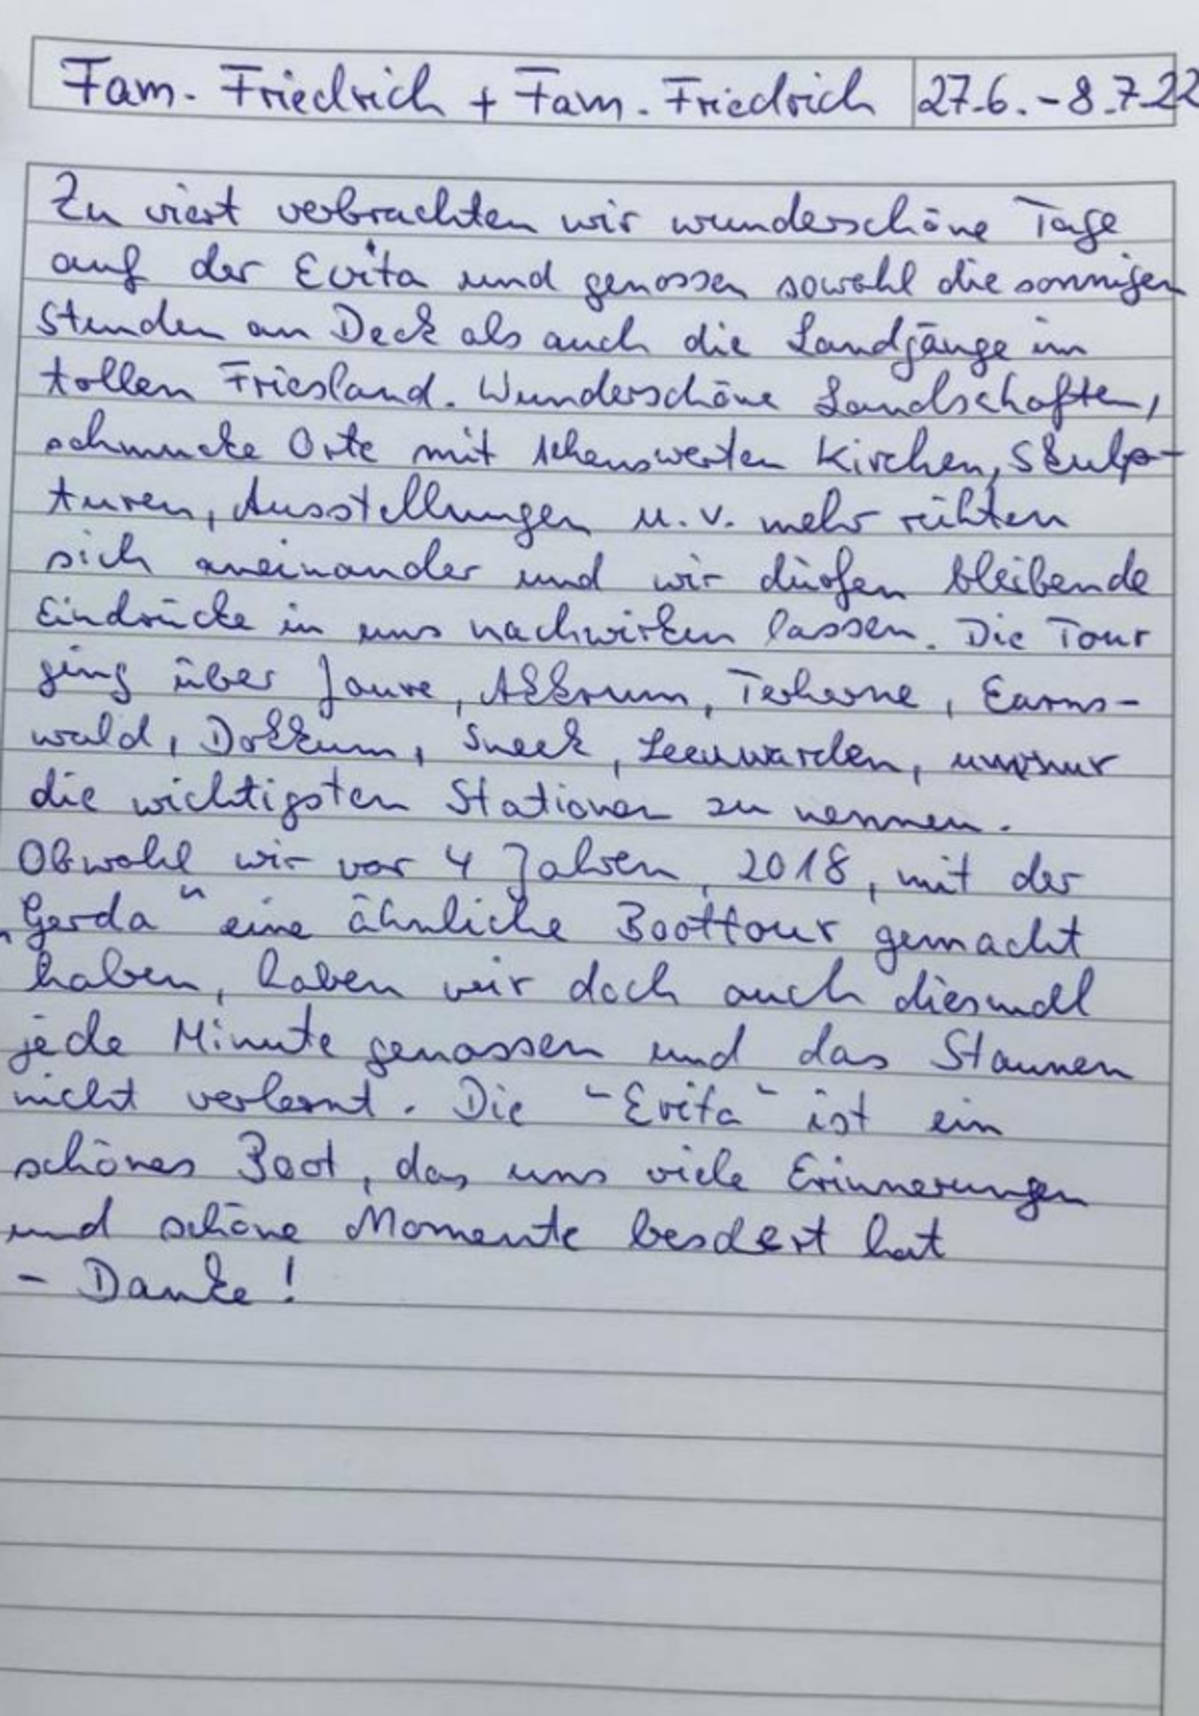 Fam. Friedrich + Fam. Friedrich 27.6. - 8.7.22
Zu viert verbrachten wir wunderschöne Tage
auf der Evita und genossen sowohl die sonnigen
Stunden an Deck als auch die Landgänge im
tollen Friesland. Wunderschöne Landschaften,
schmucke Orte mit sehenswerten Kirchen, Skulp-
turen, Ausstellungen u.v. mehr reihten
sich aneinander und wir dürfen bleibende
Eindrücke in uns nachwirken lassen. Die Tour
ging über Joure, Akkrum, Terherne, Earns-
wald, Dokkum, Sneek, Leeuwarden, um nur
die wichtigsten Stationen zu nennen.
Obwohl wir vor 4 Jahren, 2018, mit der
„Gerda" eine ähnliche Boottour gemacht
haben, haben wir doch auch diesmal
jede Minute genossen und das Staunen
nicht verlernt. Die "Evita" ist ein
schönes Boot, das uns viele Erinnerungen
und schöne Momente beschert hat
- Danke!